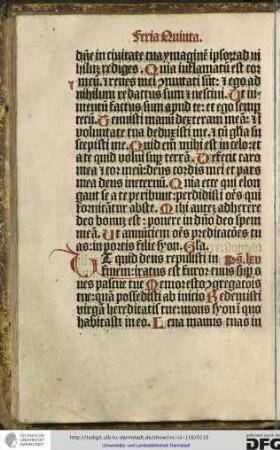 Feria Quinta.
dñe in ciuitate tua ymaginẽ ipsoɽ ad ni
hilũ rediges. Quia inflãmatũ est cor
meũ: ⁊ renes mei ↄmutati sũt: ⁊ ego ad
nihilum redactus sum ⁊ nesciui. Ut iu
mentũ factus sum apud te: et ego semp
tecũ. Tenuisti manũ dexteram meã: ⁊ ĩ
voluntate tua deduxisti me. ⁊ cũ glĩa su
scepisti me. Quid em̃ mihi est in celo: et
a te quid volui sup terrã. Defecit caro
mea ⁊ cor meũ: deus cordis mei et pars
mea deus in eternũ. Quia ecce qui elon
gant se a te peribunt: perdidisti oẽs qui
fornicãtur abs te. Mihi autez adherere
deo bonũ est: ponere in dño deo spem
meã. Ut annũciem oẽs predicatões tu
as: in portis filie syon. Gla.
Ut quid deus repulisti in Ps. lxxiij
finem: iratus est furor tuus sup
oues pascue tue Memor esto ↄgregatois
tue: quã possedisti ab inicio Redemisti
virgã hereditatis tue: mons syon ĩ quo
habitasti in eo. Leua manus tuas in
TECHNISCHE UNIVERSITÄT DARMSTADT
http://tudigit.ulb.tu-darmstadt.de/show/inc-iv-118/0110
Universitäts- und Landesbibliothek Darmstadt
gefördert durch
DFG